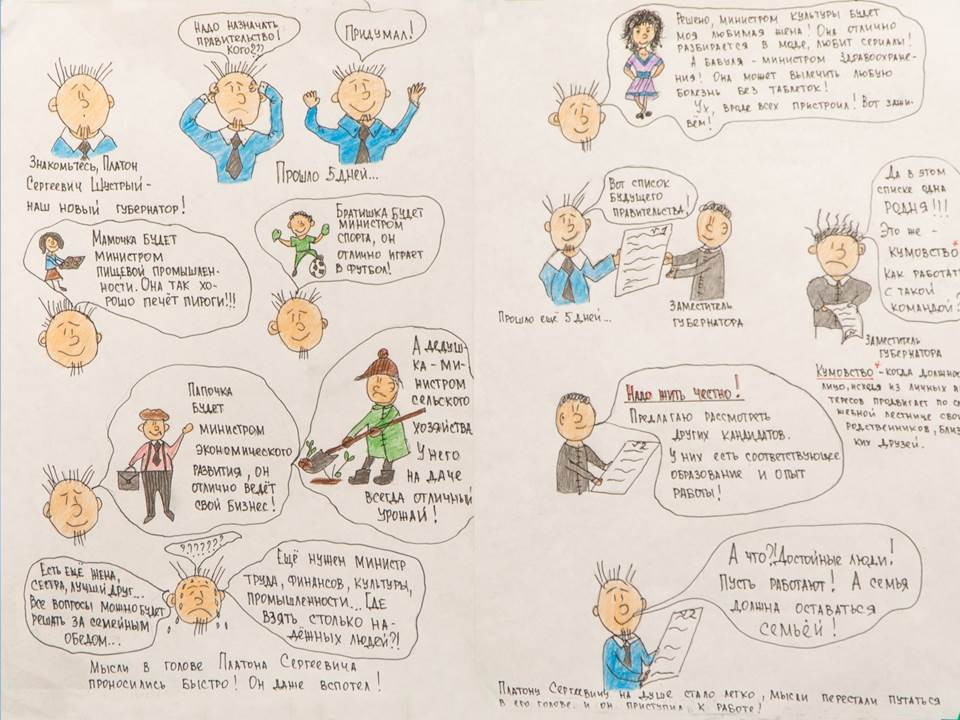 Надо назначать
правительство!
Кого???
Придумал!
Знакомьтесь, Платон
Сергеевич Шустрый -
наш новый губернатор!
Прошло 5 дней...
Мамочка будет
министром
пищевой промышлен-
ности. Она так хо-
рошо печёт пироги!!!
Братишка будет
министром
спорта, он
отлично играет
в футбол!
Папочка
будет
министром
экономического
развития, он
отлично ведёт
свой бизнес!
А дедуш-
ка - ми-
нистром
сельского
хозяйства.
У него
на даче
всегда отличный
урожай!
???????
Есть ещё жена,
сестра, лучший друг...
Все вопросы можно будет
решать за семейным
обедом...
Ещё нужен министр
труда, финансов, культуры,
промышленности... Где
взять столько на-
дёжных людей?!
Мысли в голове Платона Сергеевича
проносились быстро! Он даже вспотел!
Решено, министром культуры будет
моя любимая жена! Она отлично
разбирается в моде, любит сериалы!
А бабуля - министром здравоохране-
ния! Она может вылечить любую
болезнь без таблеток!
Ух, вроде всех пристроил! Вот зажи-
вём!
Вот список
будущего
правительства!
№1
Прошло ещё 5 дней...
Заместитель
губернатора
Да в этом
списке одна
родня!!!
Это же -
кумовство*
Как работать
с такой
командой?
Заместитель
губернатора
Кумовство* - когда должнос
лицо, исходя из личных ин
тересов продвигает по сл
жебной лестнице свои
родственников, близ
ких друзей.
Надо жить честно!
Предлагаю рассмотреть
других кандидатов.
У них есть соответствующее
образование и опыт
работы!
№2
А что?! Достойные люди!
Пусть работают! А семья
должна оставаться
семьёй!
№2
Платону Сергеевичу на душе стало легко, мысли перестали путаться
в его голове. и он приступил к работе!